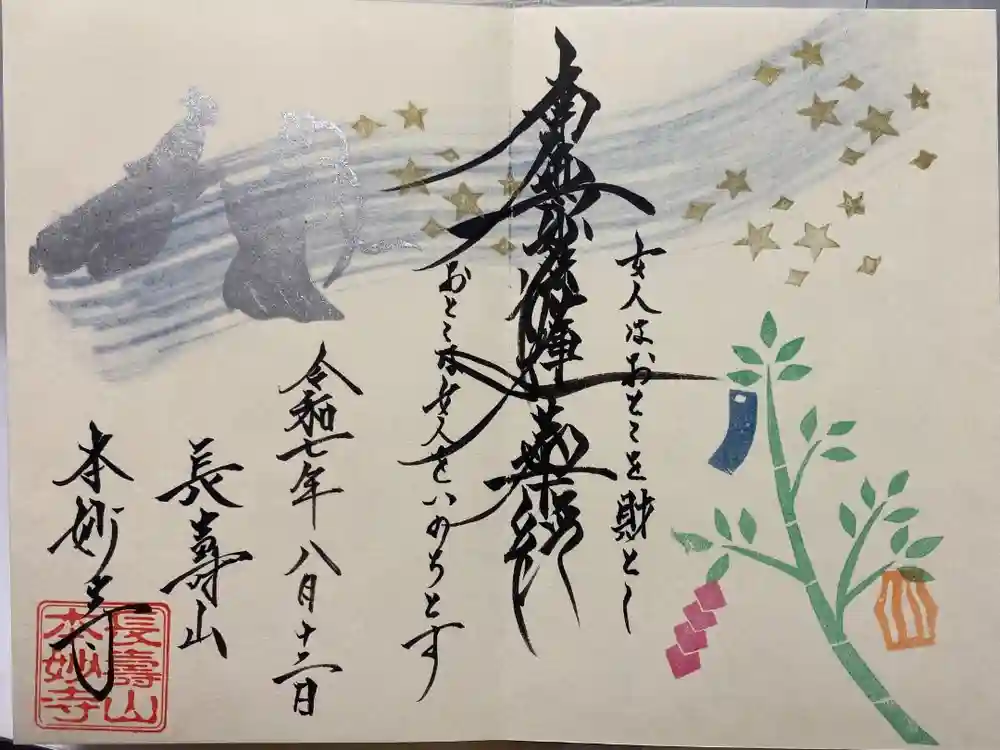 女人はおとこを財とし
南無妙法蓮華経
おとこは女人をいのちとす
令和七年八月十二日
長壽山
本妙寺
長壽山
本妙寺